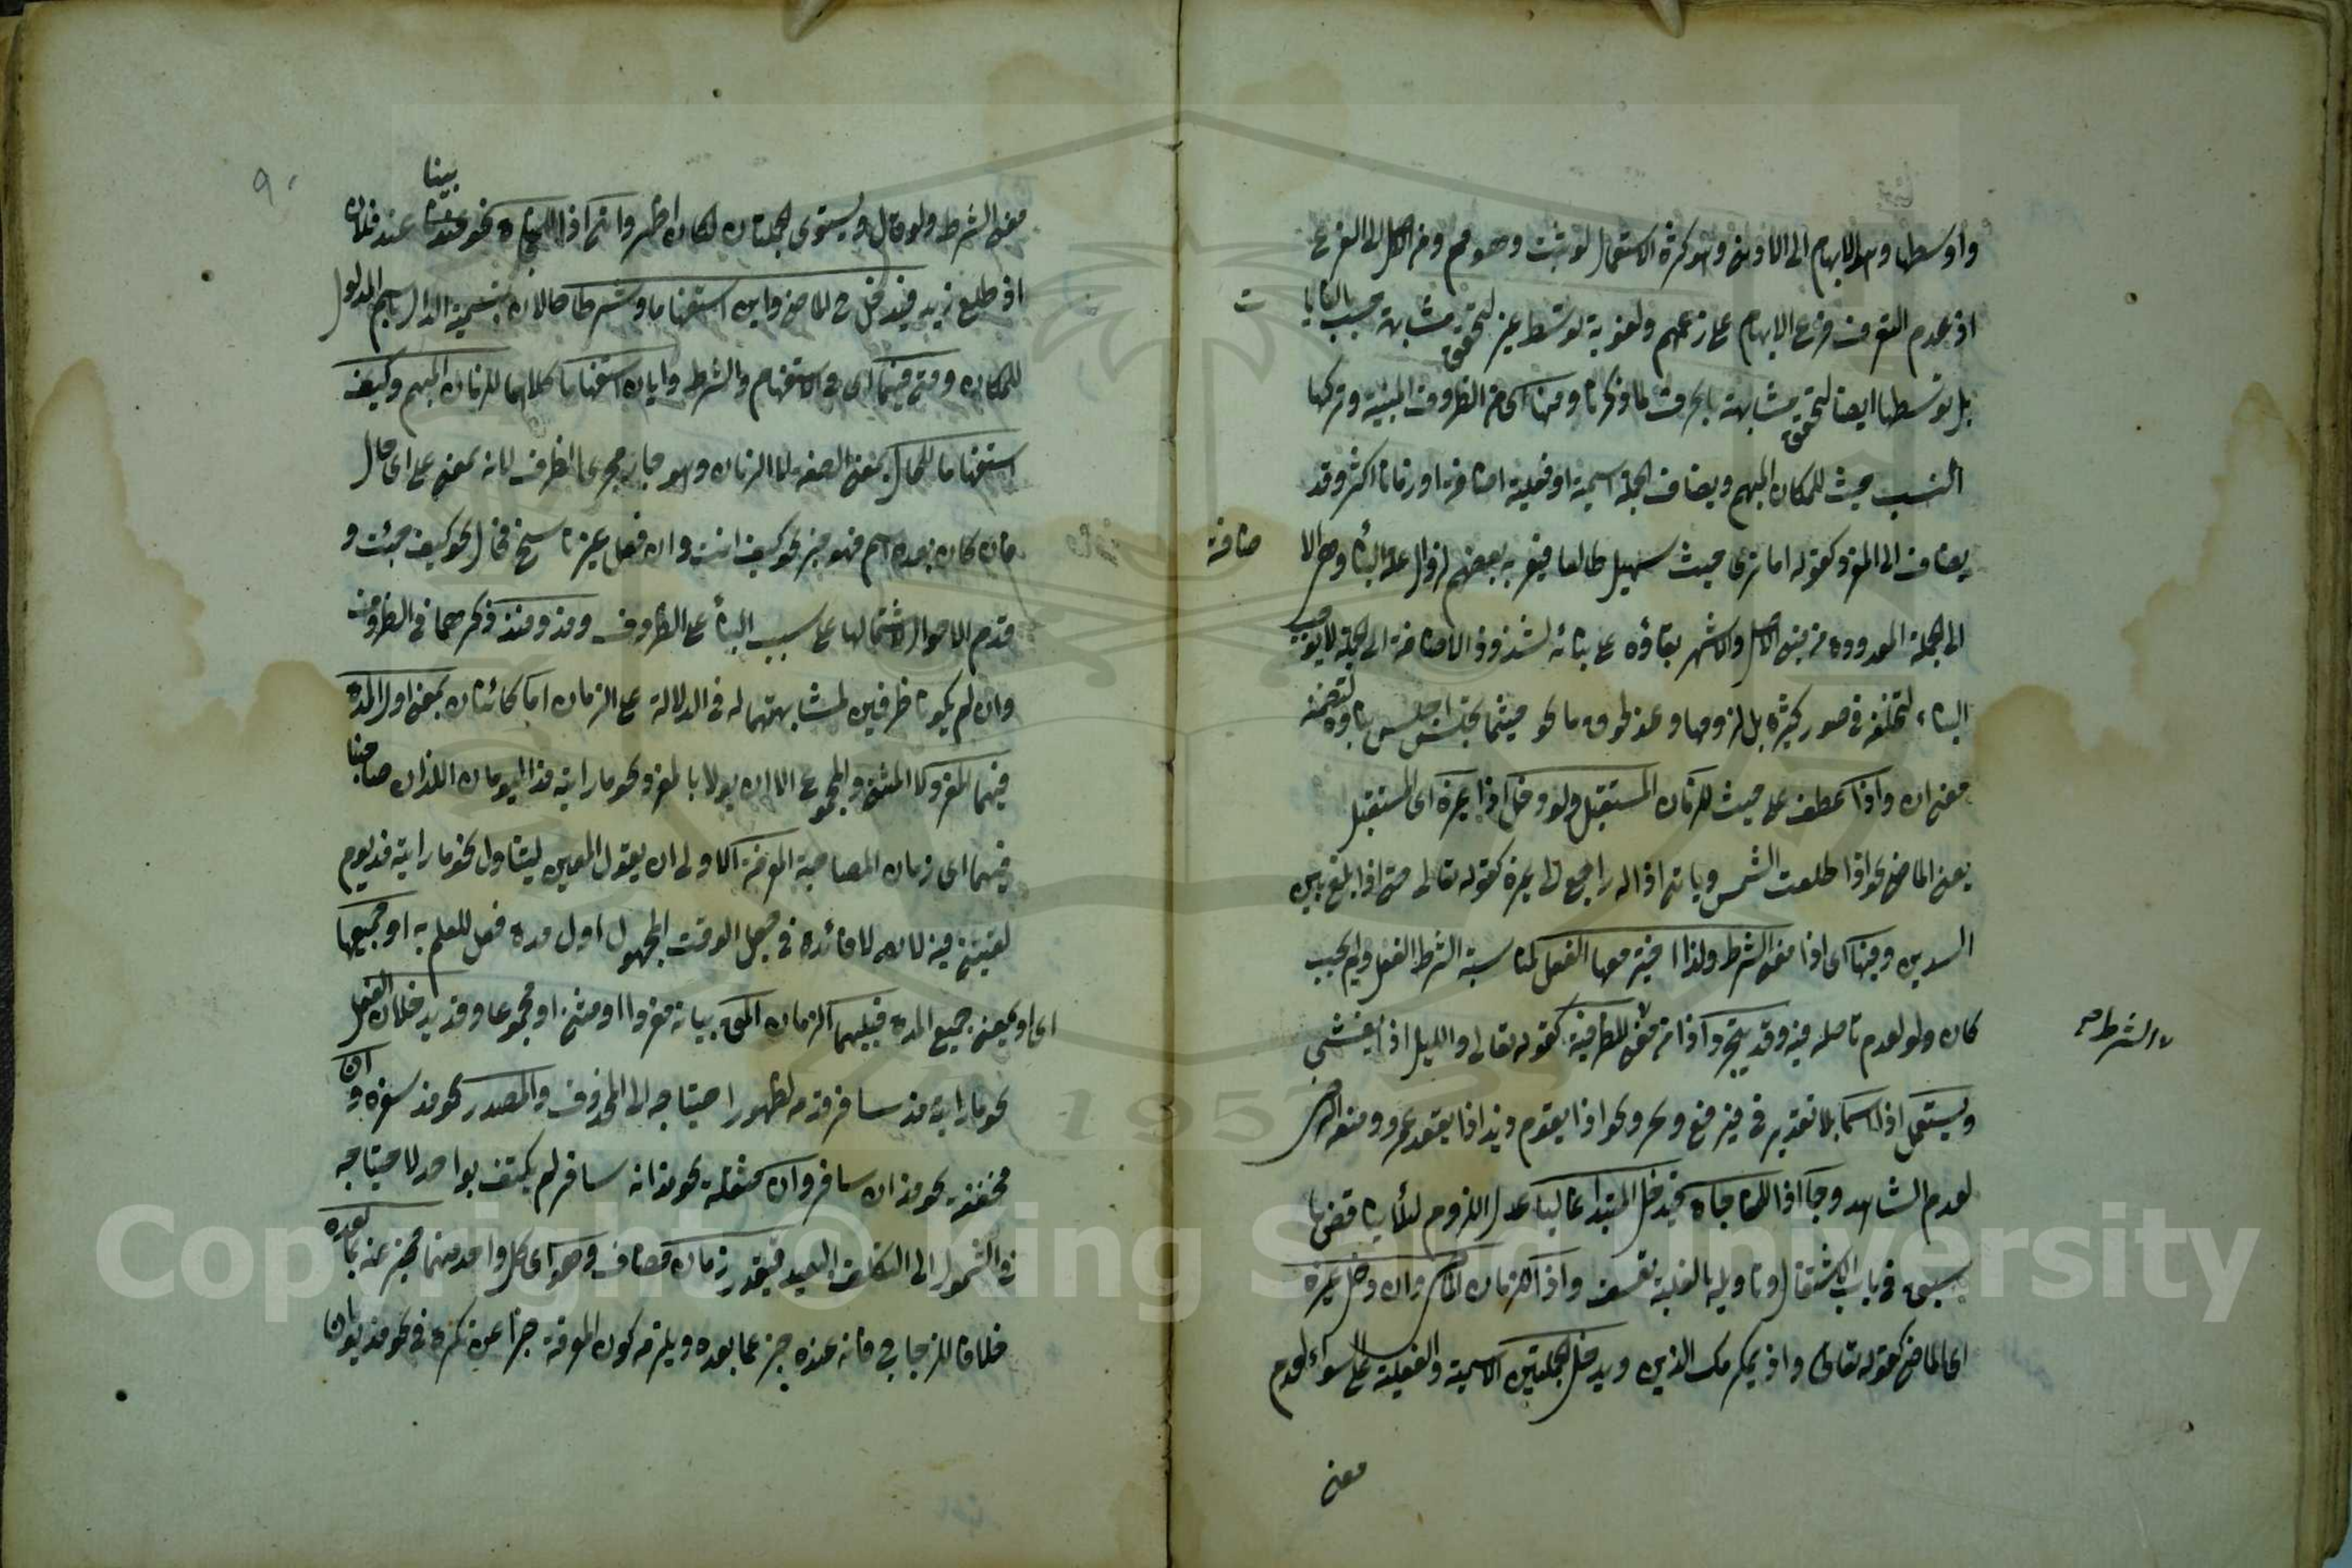 واوسطها وهو الابهام الى الاولين وهو كثرة الاستعمال لو ثبت وهو مم ومن الكل الى الفرع
اذ عدم التعرف فرع الابهام على زعمهم ولغوية توسط غير لتحقق مشابهة حسب الغايات
بل توسطها ايضا لتحقق مشابهة بالحرف لما ذكرنا ومنها اى من الظروف المبنية وتركها
انسب حيث للمكان المبهم ويضاف الجملة اسمية او فعلية اضافة اورثنا اكثر وقد
يضاف الى المفرد كقوله اما ترى حيث سهيل طالعا فيعربه بعضهم لزوال علة البناء وهى الاضافة
الى الجملة المعدودة من مبنى الاصل والاشهر بقاؤه على بنائه لشذوذ الاضافة الى الجملة لا يوجب
البناء لتخلفه فى صور كثيرة بل لزومها وعند لحوق ما نحو حيثما تجلس اجلس بناؤه لتضمنه
معنى ان واذا عطف على حيث للزمان المستقبل ولو دخل اذا غيره اى المستقبل
يعنى الماضى نحو اذا طلعت الشمس وياتى اذا له راجع الى غيره كقوله تعالى حتى اذا بلغ بين
السدين وفيها اى اذا معنى الشرط ولذا اختير معها الفعل لمناسبة الشرط الفعل ولم يجب
كان ولو لعدم تاصله فيه وقد يتجرد اذا من معنى الشرط للظرفية كقوله تعالى والليل اذا يغشى
ويستعمل اذا اسما بلا تقدير فى فيرفع ويجر نحو اذا يقوم زيد اذا يقعد عمرو ومنعه
لعدم الشاهد وجاء اذا للمفاجاة فيدخل المبتدأ غالبا عدل اللزوم لئلا يناقض ما
سبق فى باب الاشتغال وتاويله بالغلبة تعسف واذ للزمان الماضى وان دخل غيره
اى الماضى كقوله تعالى واذ يمكر بك الذين ويدخل الجملتين الاسمية والفعلية على السواء لعدم
معنى
معنى الشرط ولو قال ويستوى الجملتان لكان اظهر واتى اذ للمفاجاة نحو بينا عند فلان
اذ طلع زيد فيدخل ح الماضى واين استفهاما وشرطا حالان بتسمية الدال باسم المدلول
للمكان ومتى فيهما اى فى الاستفهام والشرط وايان استفهاما كلاهما للزمان المبهم وكيف
استفهاما للحال بمعنى الصفة لا الزمان وهو جار مجرى الظرف لانه بمعنى على اى حال
فان كان بعده اسم فهو خبر نحو كيف انت وان فعل غير ناسخ فحال نحو كيف جئت و
قدم الاحوال لاشتمالها على سبب البناء على الظروف ومذ ومنذ ذكرهما فى الظروف
وان لم يكونا ظرفين لمشابهتهما له فى الدلالة على الزمان اما كائنان بمعنى اول المدة
فيليهما المفرد لا المثنى والمجموع الا ان يولا بالمفرد نحو ما رايته مذ اليومان اللذان صاحبنا
فيهما اى زمان المصاحبة المعرفة الاولى ان يقول المعين ليتناول نحو ما رايته مذ يوم
لقيتنى فيه لانه لا فائدة فى جعل الوقت المجهول اول مدة فعل للعلم به او جميعها
اى او بمعنى جميع المدة فيليهما الزمان المق بيانه مفردا او مثنى او مجموعا وقد يدخلان الفعل
نحو ما رايته مذ سافر قدمه لظهور احتياجه الى المحذوف والمصدر نحو مذ سفره وان
مخففة نحو مذ ان سافر وان مثقلة نحو مذ انه سافر لم يكتف بواحد لاحتياجه
فى الشمول الى التكلف البعيد فيقدر زمان مضاف وهو اى كل واحد منهما مخبر عنه بما بعده
خلافا للزجاجى فانه عنده خبر عما بعده ويلزمه كون المعرفة خبرا عن نكرة فى نحو مذ يومان